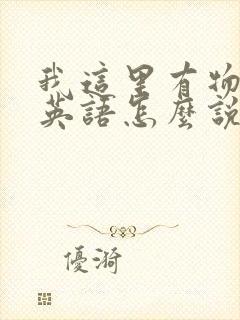 我這里有物
英語怎麼說
優漪